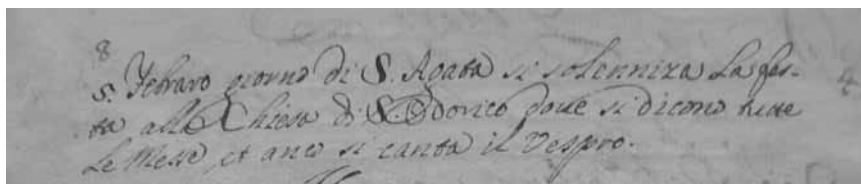 8
5. Febraro giorno di S. Agata si solenniza la fes-
ta alla Chiesa di S. Odorico doue si dicono tutte
le Messe, et anco si canta il Vespro.